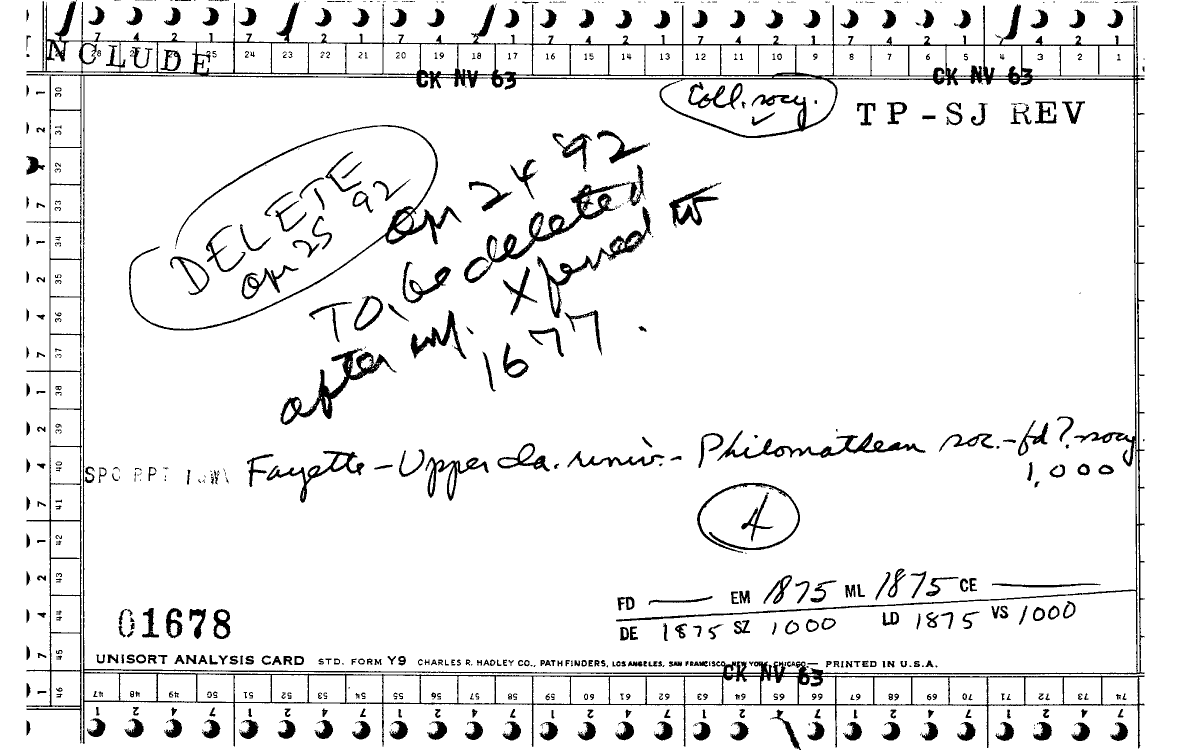 7 4 2 1 7 4 2 1 7 4 2 1 7 4 2 1 7 4 2 1 7 4 2 1 7 4 2 1
INCLUDE 25 24 23 22 21 20 19 18 17 16 15 14 13 12 11 10 9 8 7 6 5 4 3 2 1
CK NV 63 CK NV 63
Coll. socy.
TP-SJ REV
DELETE
apr 25 92
apr 24 '92
TO be deleted
after inf. Xferred to
1677.
SPC RPT IOWA Fayette-Upper Ia. univ.- Philomathean soc.-fd?.-socy
1,000
4
FD — EM 1875 ML 1875 CE —
DE 1875 SZ 1000 LD 1875 VS 1000
01678
UNISORT ANALYSIS CARD STD. FORM Y9 CHARLES R. HADLEY CO., PATHFINDERS, LOS ANGELES, SAN FRANCISCO, NEW YORK, CHICAGO— PRINTED IN U.S.A.
CK NV 63
47 48 49 50 51 52 53 54 55 56 57 58 59 60 61 62 63 64 65 66 67 68 69 70 71 72 73 74
1 2 4 7 1 2 4 7 1 2 4 7 1 2 4 7 1 2 4 7 1 2 4 7 1 2 4 7
1 30
2 31
32
7 33
1 34
2 35
4 36
7 37
1 38
2 39
4 40
7 41
1 42
2 43
4 44
7 45
1 46